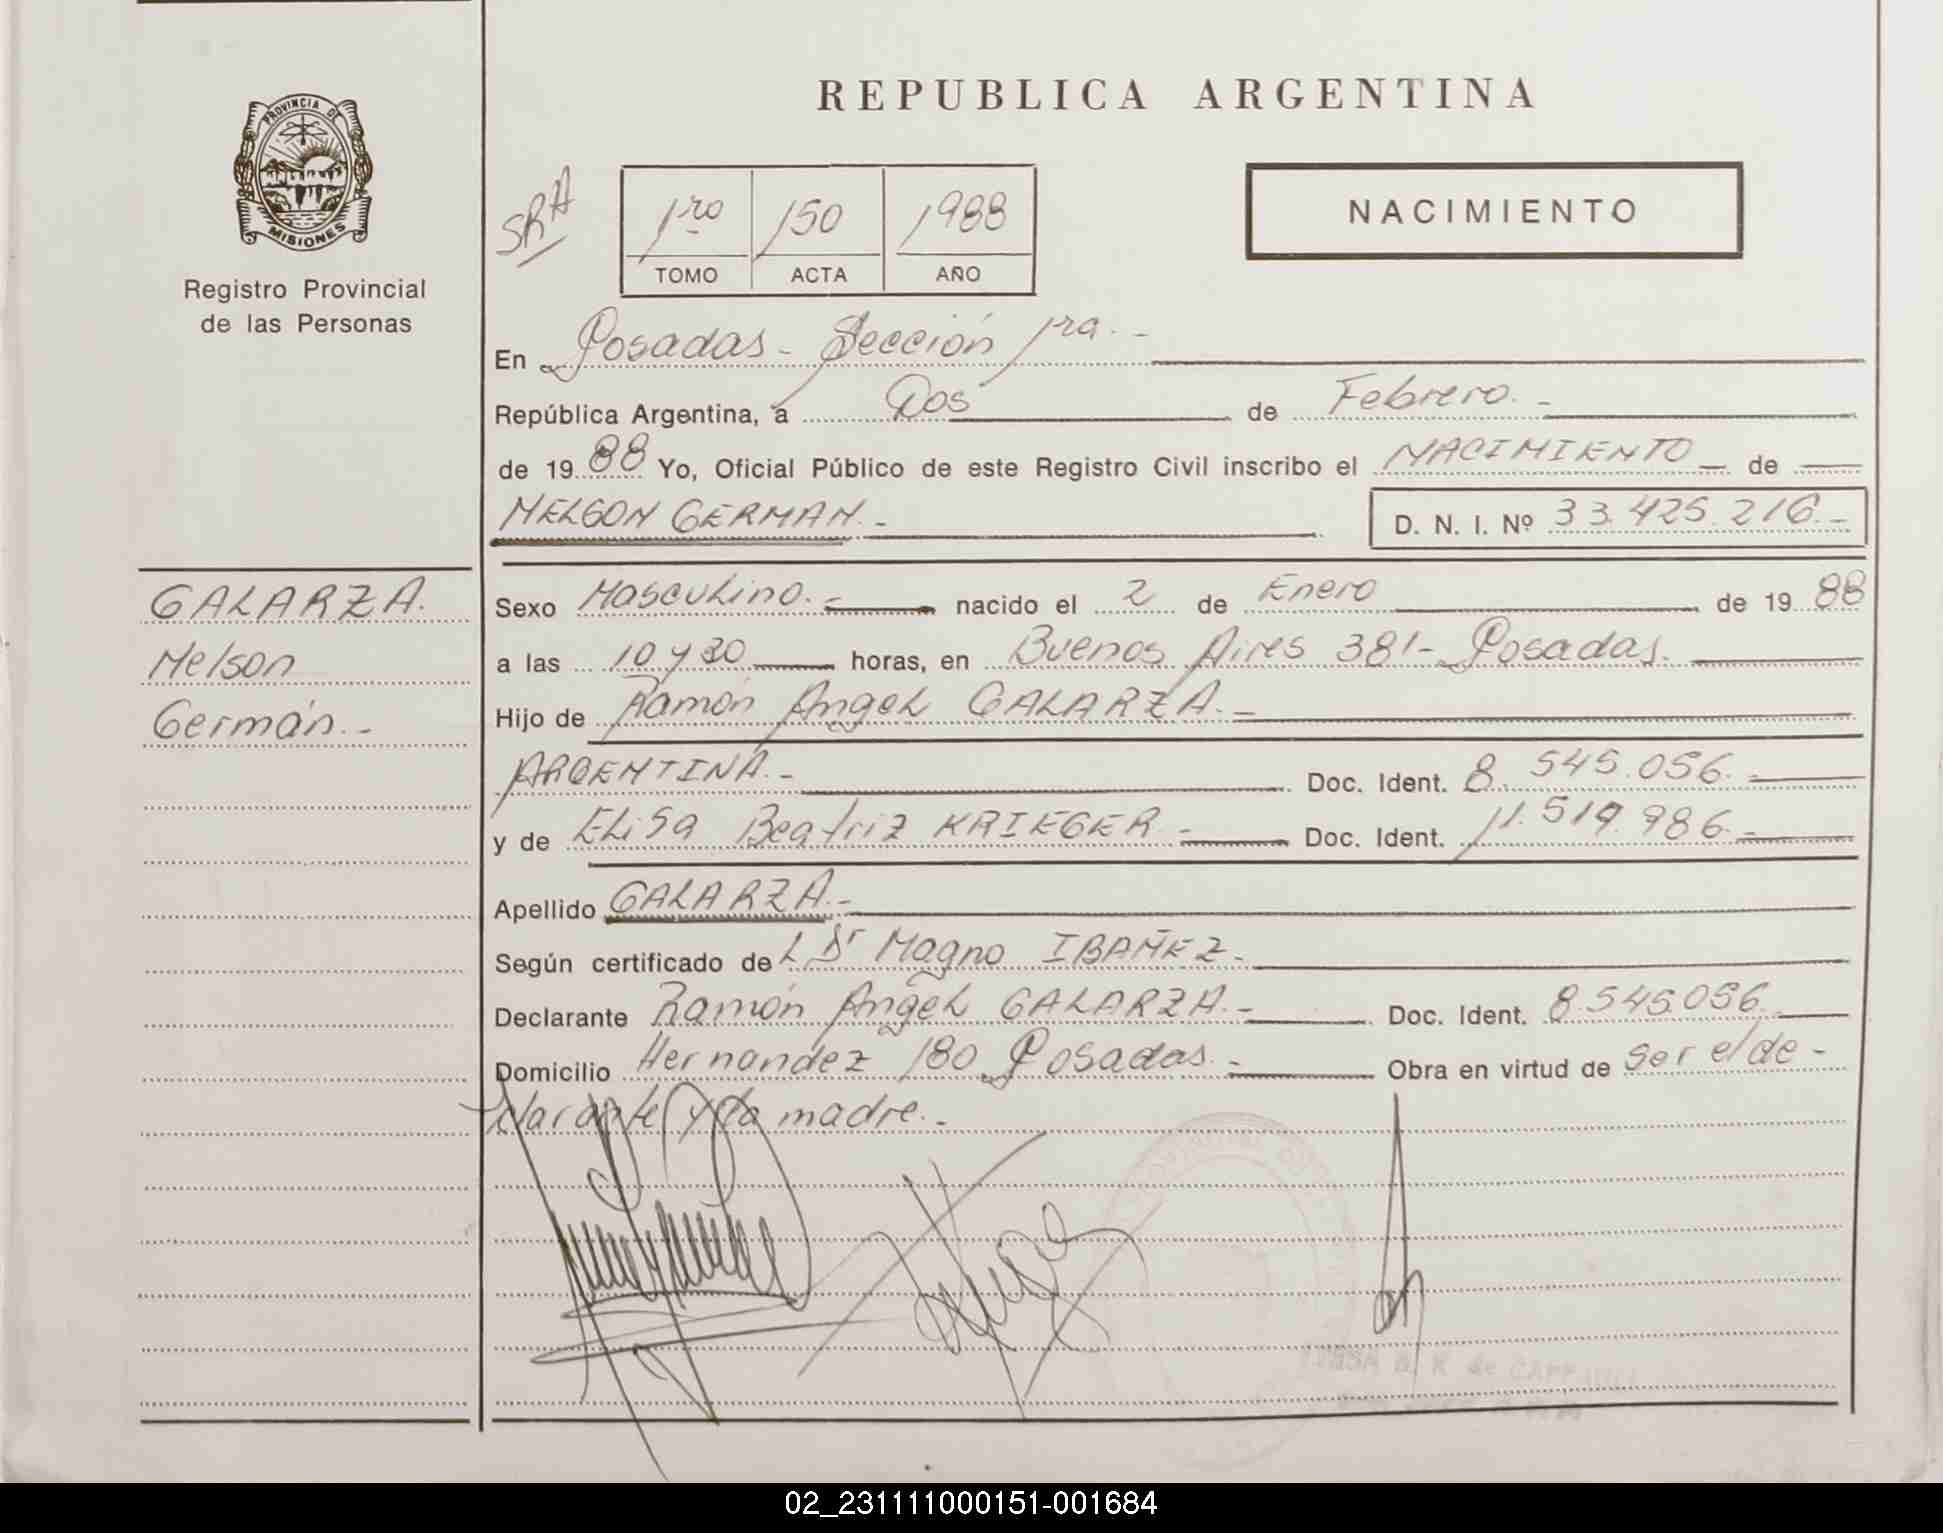 REPUBLICA ARGENTINA
PROVINCIA DE
MISIONES
Registro Provincial
de las Personas
SRA
1ro 150 1988
TOMO ACTA AÑO
NACIMIENTO
En Posadas - Sección 1ra. -
República Argentina, a Dos de Febrero. -
de 19 88 Yo, Oficial Público de este Registro Civil inscribo el NACIMIENTO - de
NELSON GERMAN. - D. N. I. Nº 33.425.216. -
GALARZA.
Nelson
Germán. -
Sexo Masculino. - nacido el 2 de Enero de 19 88
a las 10 y 30 horas, en Buenos Aires 381 - Posadas.
Hijo de Ramón Angel GALARZA. -
ARGENTINA. - Doc. Ident. 8.545.056. -
y de Elisa Beatriz KRIEGER - Doc. Ident. 11.519.986. -
Apellido GALARZA. -
Según certificado de L Dr Magno IBAÑEZ. -
Declarante Ramón Angel GALARZA. - Doc. Ident. 8.545.056.
Domicilio Hernandez 180 Posadas. - Obra en virtud de ser el de -
clarante y la madre. -
de
02_231111000151-001684